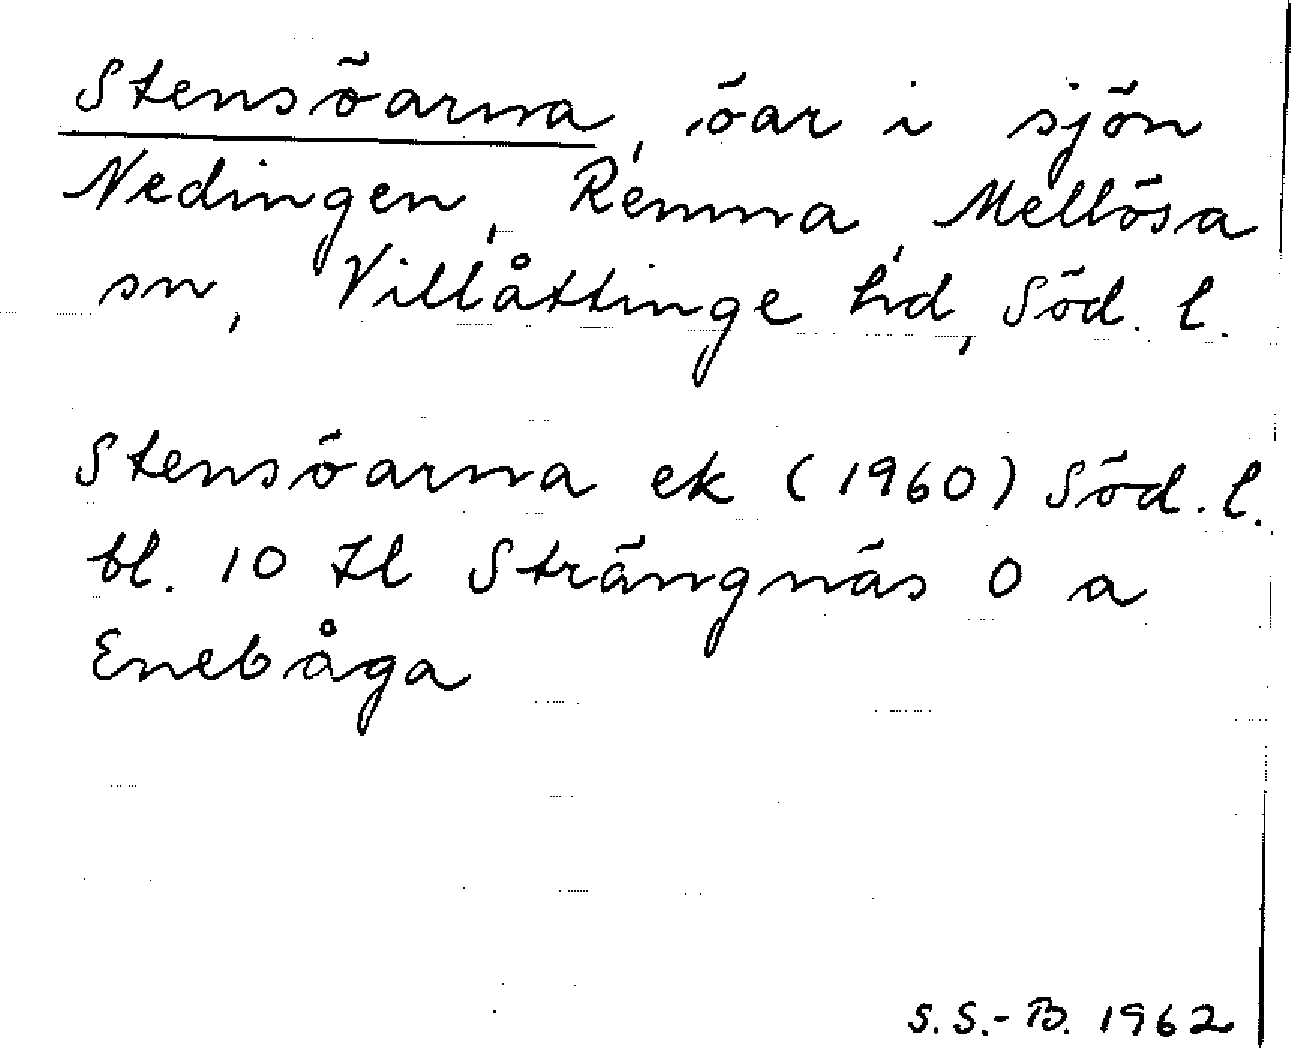 Stensöarna, öar i sjön
Nedingen, Remna, Mellösa
sn, Villåttinge hd, Söd. l.
Stensöarna ek (1960) Söd. l.
bl. 10 Il Strängnäs O a
Enebåga
S. S.-B. 1962